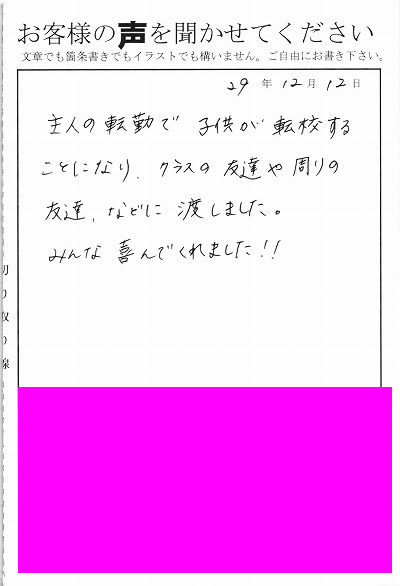 お客様の声を聞かせてください
文章でも箇条書きでもイラストでも構いません。ご自由にお書き下さい。
29年12月12日
主人の転勤で 子供が転校する
ことになり、クラスの友達や周りの
友達、などに渡しました。
みんな喜んでくれました!!
切り取り線